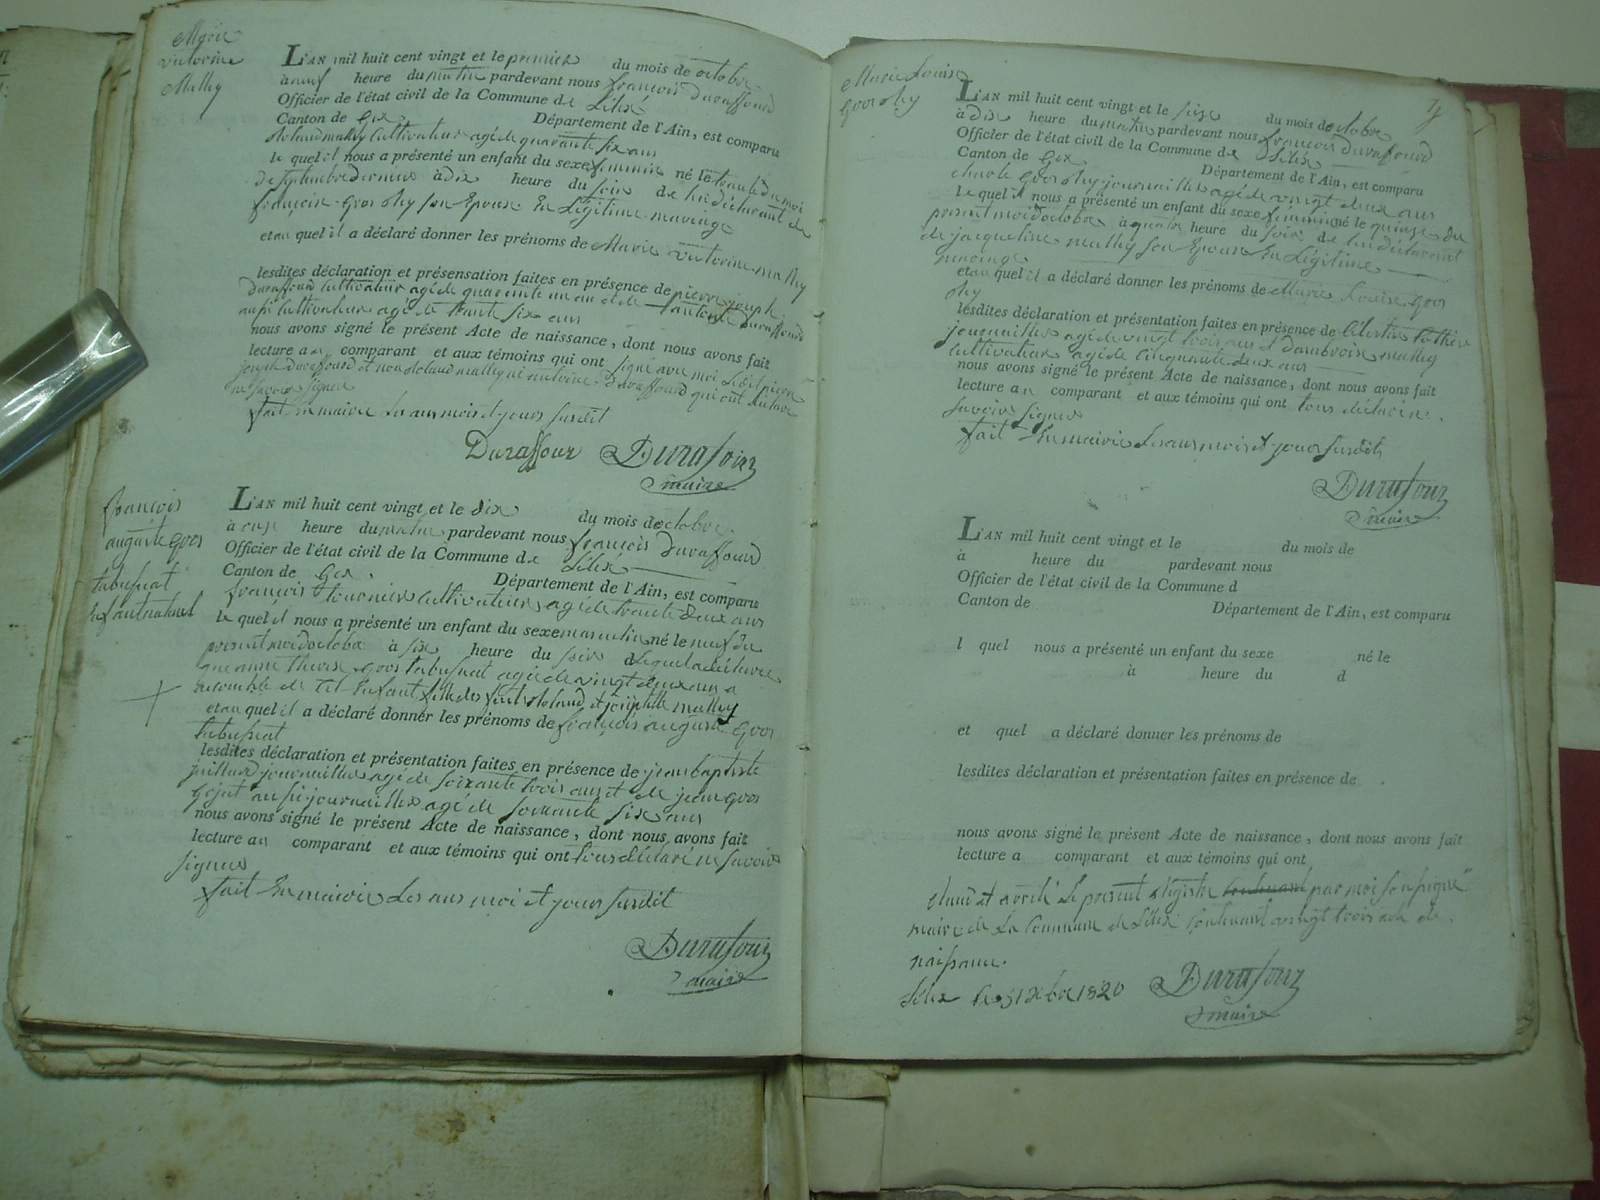 Marie
victorine
Mathy
L'AN mil huit cent vingt et le premier du mois de octobre
à neuf heure du matin pardevant nous françois Duraffourd
Officier de l'état civil de la Commune de Lélex
Canton de Gex Département de l'Ain, est comparu
roland mathy Cultivateur agé de quarante six ans
le quel il nous a présenté un enfant du sexe feminin né le trente du moi
de septembre dernier à dix heure du soir de lui déclarant de
françoise grosphy son Epouse En Légitime mariage
et au quel il a déclaré donner les prénoms de Marie victorine mathy
lesdites déclaration et présensation faites en présence de pierre joseph
Duraffourd Cultivateur agé de quarante un an et de antoine Duraffourd
aussi Cultivateur agé de trente six ans
nous avons signé le présent Acte de naissance, dont nous avons fait
lecture au comparant et aux témoins qui ont signé avec moi Ledit pierre
joseph duraffourd et non Roland mathy ni antoine Duraffourd qui ont declaré
ne savoir signer
fait En mairie Les ans mois et jours susdit
Duraffour Durafour
maire
françois
auguste gros
tabussat
Enfant naturel
L'AN mil huit cent vingt et le dix du mois de octobre
à onze heure du matin pardevant nous françois Duraffourd
Officier de l'état civil de la Commune de Lélex
Canton de Gex. Département de l'Ain, est comparu
françois tournier Cultivateur agé de trente deux ans
le quel il nous a présenté un enfant du sexe masculin né le neuf du
présent moi doctobre à six heure du soir
que anne gros tabussat agé de vingt deux ans a
de Cet Enfant fille des Roland et josephte mathy
et au quel il a déclaré donner les prénoms de françois auguste gros
tabussat
lesdites déclaration et présentation faites en présence de jean baptiste
juilland journaillier agé de soixante trois ans et de jean gros
gojat aussi journaillier agé de soixante six ans
nous avons signé le présent Acte de naissance, dont nous avons fait
lecture au comparant et aux témoins qui ont tous déclaré ne savoir
signer
fait En mairie Les ans moi et jours susdit
Durafour
maire
Marie Louise
grosphy
L'AN mil huit cent vingt et le seize du mois de octobre
à dix heure du matin pardevant nous françois Duraffourd
Officier de l'état civil de la Commune de Lélex
Canton de Gex Département de l'Ain, est comparu
charle grosphy journaillier agé de vingt deux ans
le quel il nous a présenté un enfant du sexe feminin né le quinze du
présent moi doctobre à quatre heure du soir de lui déclarant
de jacqueline mathy son Epouse En Légitime
mariage
et au quel il a déclaré donner les prénoms de Marie Louise gros
phy
lesdites déclaration et présentation faites en présence de
journaillier agé de vingt trois ans et dambroise mathy
Cultivateur agé de Cinquante deux ans
nous avons signé le présent Acte de naissance, dont nous avons fait
lecture au comparant et aux témoins qui ont tous déclaré.
savoir signer
fait En mairie Les ans mois et jours susdits
Durafour
maire
L'AN mil huit cent vingt et le du mois de
à heure du pardevant nous
Officier de l'état civil de la Commune d
Canton de Département de l'Ain, est comparu
l quel nous a présenté un enfant du sexe né le
à heure du d
et quel a déclaré donner les prénoms de
lesdites déclaration et présentation faites en présence de
nous avons signé le présent Acte de naissance, dont nous avons fait
lecture a comparant et aux témoins qui ont
Clau et arrêté Le présent Registre par moi soussigné
maire de La Commune de Lélex Contenant vingt trois acte de
naissance.
Lélex Le 31 Xbre 1820 Durafour
maire